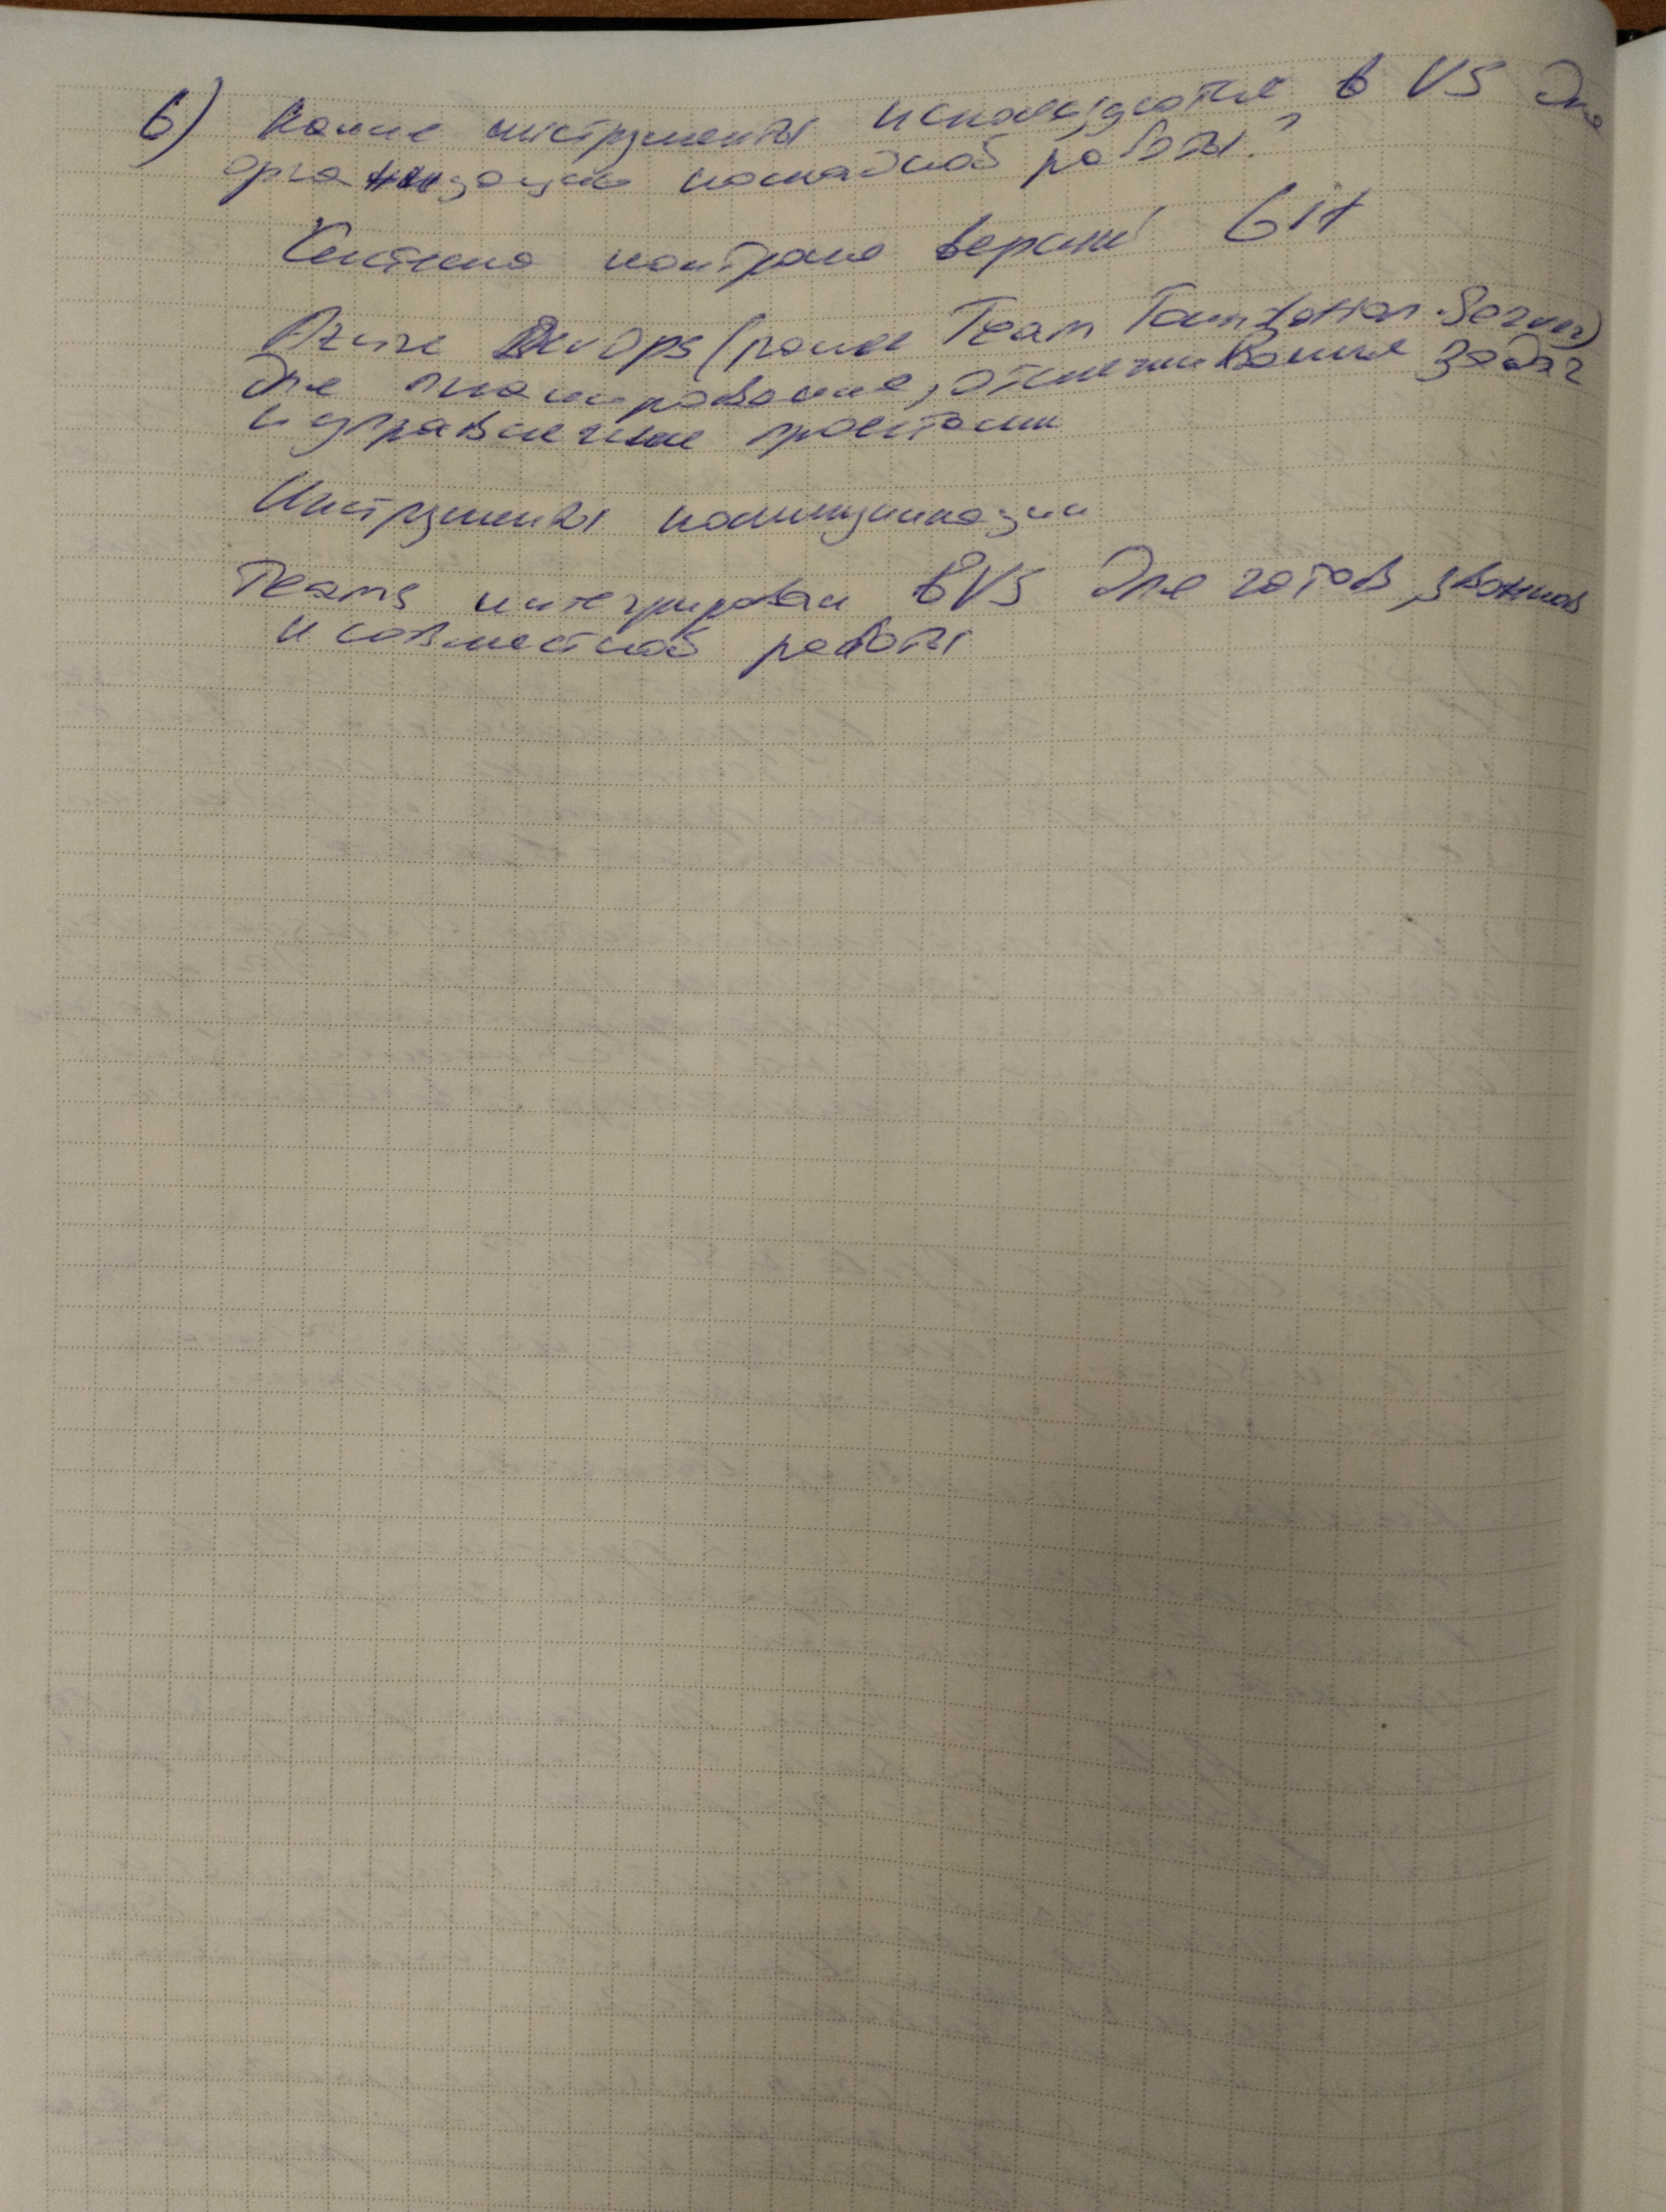 6) Какие инструменты используются в VS для
организации командной работы?
Система контроля версий Git
Azure DevOps (ранее Team Foundation Server)
для планирования, отслеживания задач
и управления проектами
Инструменты коммуникации
Teams интегрирован в VS для чатов, звонков
и совместной работы